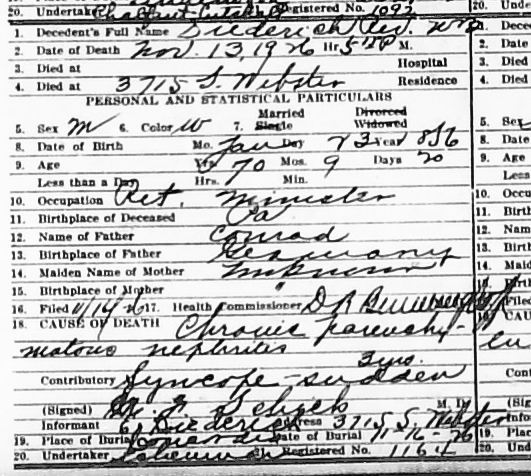 20. Undertaker Registered No. 1092 20. Undertak
1. Decedent's Full Name Diederich, Rev. 1. Dece
2. Date of Death Nov. 13, 1926 Hr. M. 2. Date
3. Died at Hospital 3. Died
4. Died at 3715 S. Webster Residence 4. Died
PERSONAL AND STATISTICAL PARTICULARS
5. Sex M 6. Color W 7. Married Single Divorced Widowed 5. Sex
8. Date of Birth Mo. Jan Day Year 856 8. Date
9. Age Yrs 70 Mos. 9 Days 20 9. Age
Less than a Day Hrs. Min. Less
10. Occupation Ret. Minister 10. Occu
11. Birthplace of Deceased Pa 11. Birth
12. Name of Father Conrad 12. Nam
13. Birthplace of Father Germany 13. Birth
14. Maiden Name of Mother Unknown 14. Maid
15. Birthplace of Mother " 15. Birth
16. Filed 11/14/26 17. Health Commissioner 16. Filed
18. CAUSE OF DEATH Chronic parenchy- 18. CAU
matous nephritis
3 yrs.
Contributory Syncope - sudden Cont
(Signed) Schick M. D. (Sig
Informant Diederich Address 3715 S. Webster Infor
19. Place of Burial Date of Burial 11-16-26 19. Place
20. Undertaker Registered No. 20. Unde